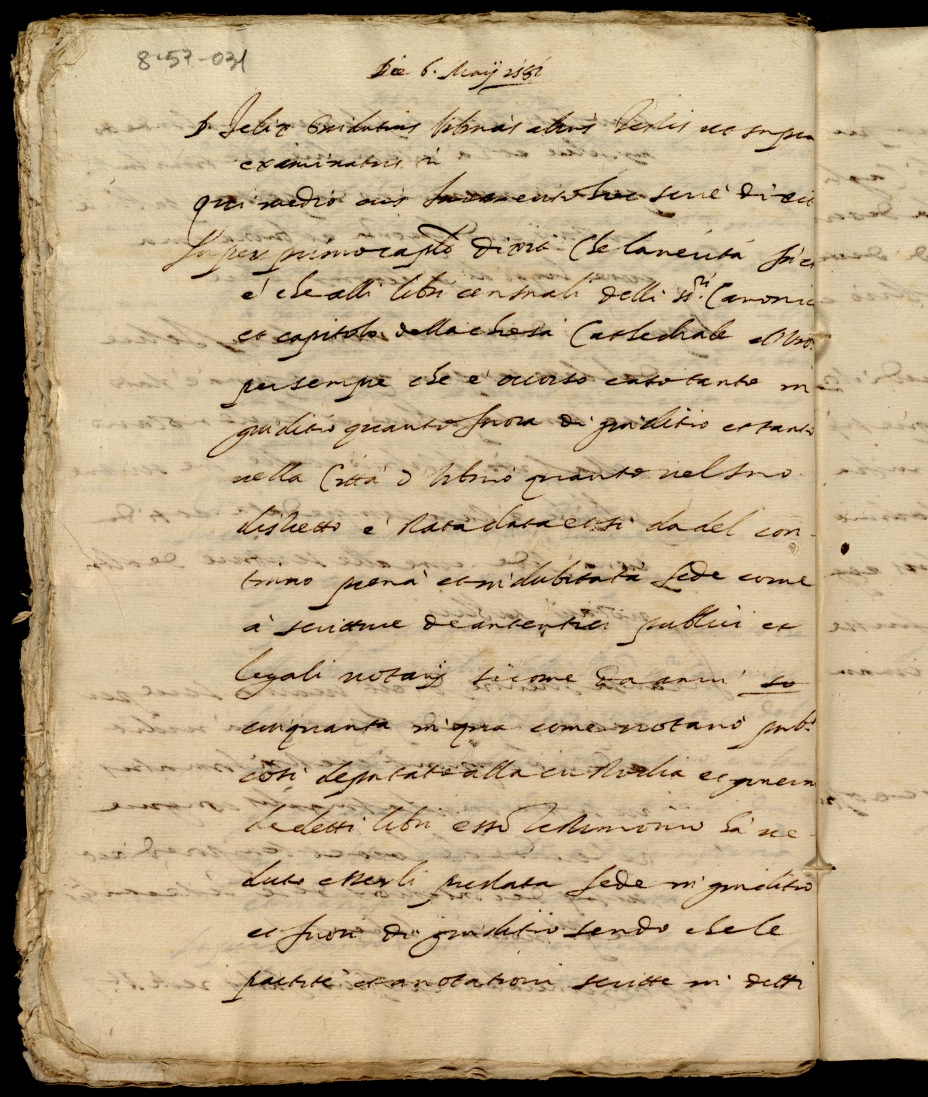 8-57-031
Die 6. Maij
D. Felix urbinas testis ut supra
examinatus
qui medio eius iuramento
Super primo caplo la verità
è che alli libri censuali delli Canonici
et capitolo della chiesa Cathedrale
per sempre che è occorso tanto in
giuditio quanto fuora di giuditio et tanto
nella Città d'Urbino quanto nel suo
distretto è stata data et si dà del con-
tinuo piena et indubitata fede come
à scritture de autentici publici et
legali notarij sicome da anni
cinquanta in qua come notario pub.
così deputato alla custodia et
de detti libri esso Testimonio hà ve-
duto esserli prestata fede in giuditio
et fuori di giuditio sendo che le
partite et annotationi scritte in detti